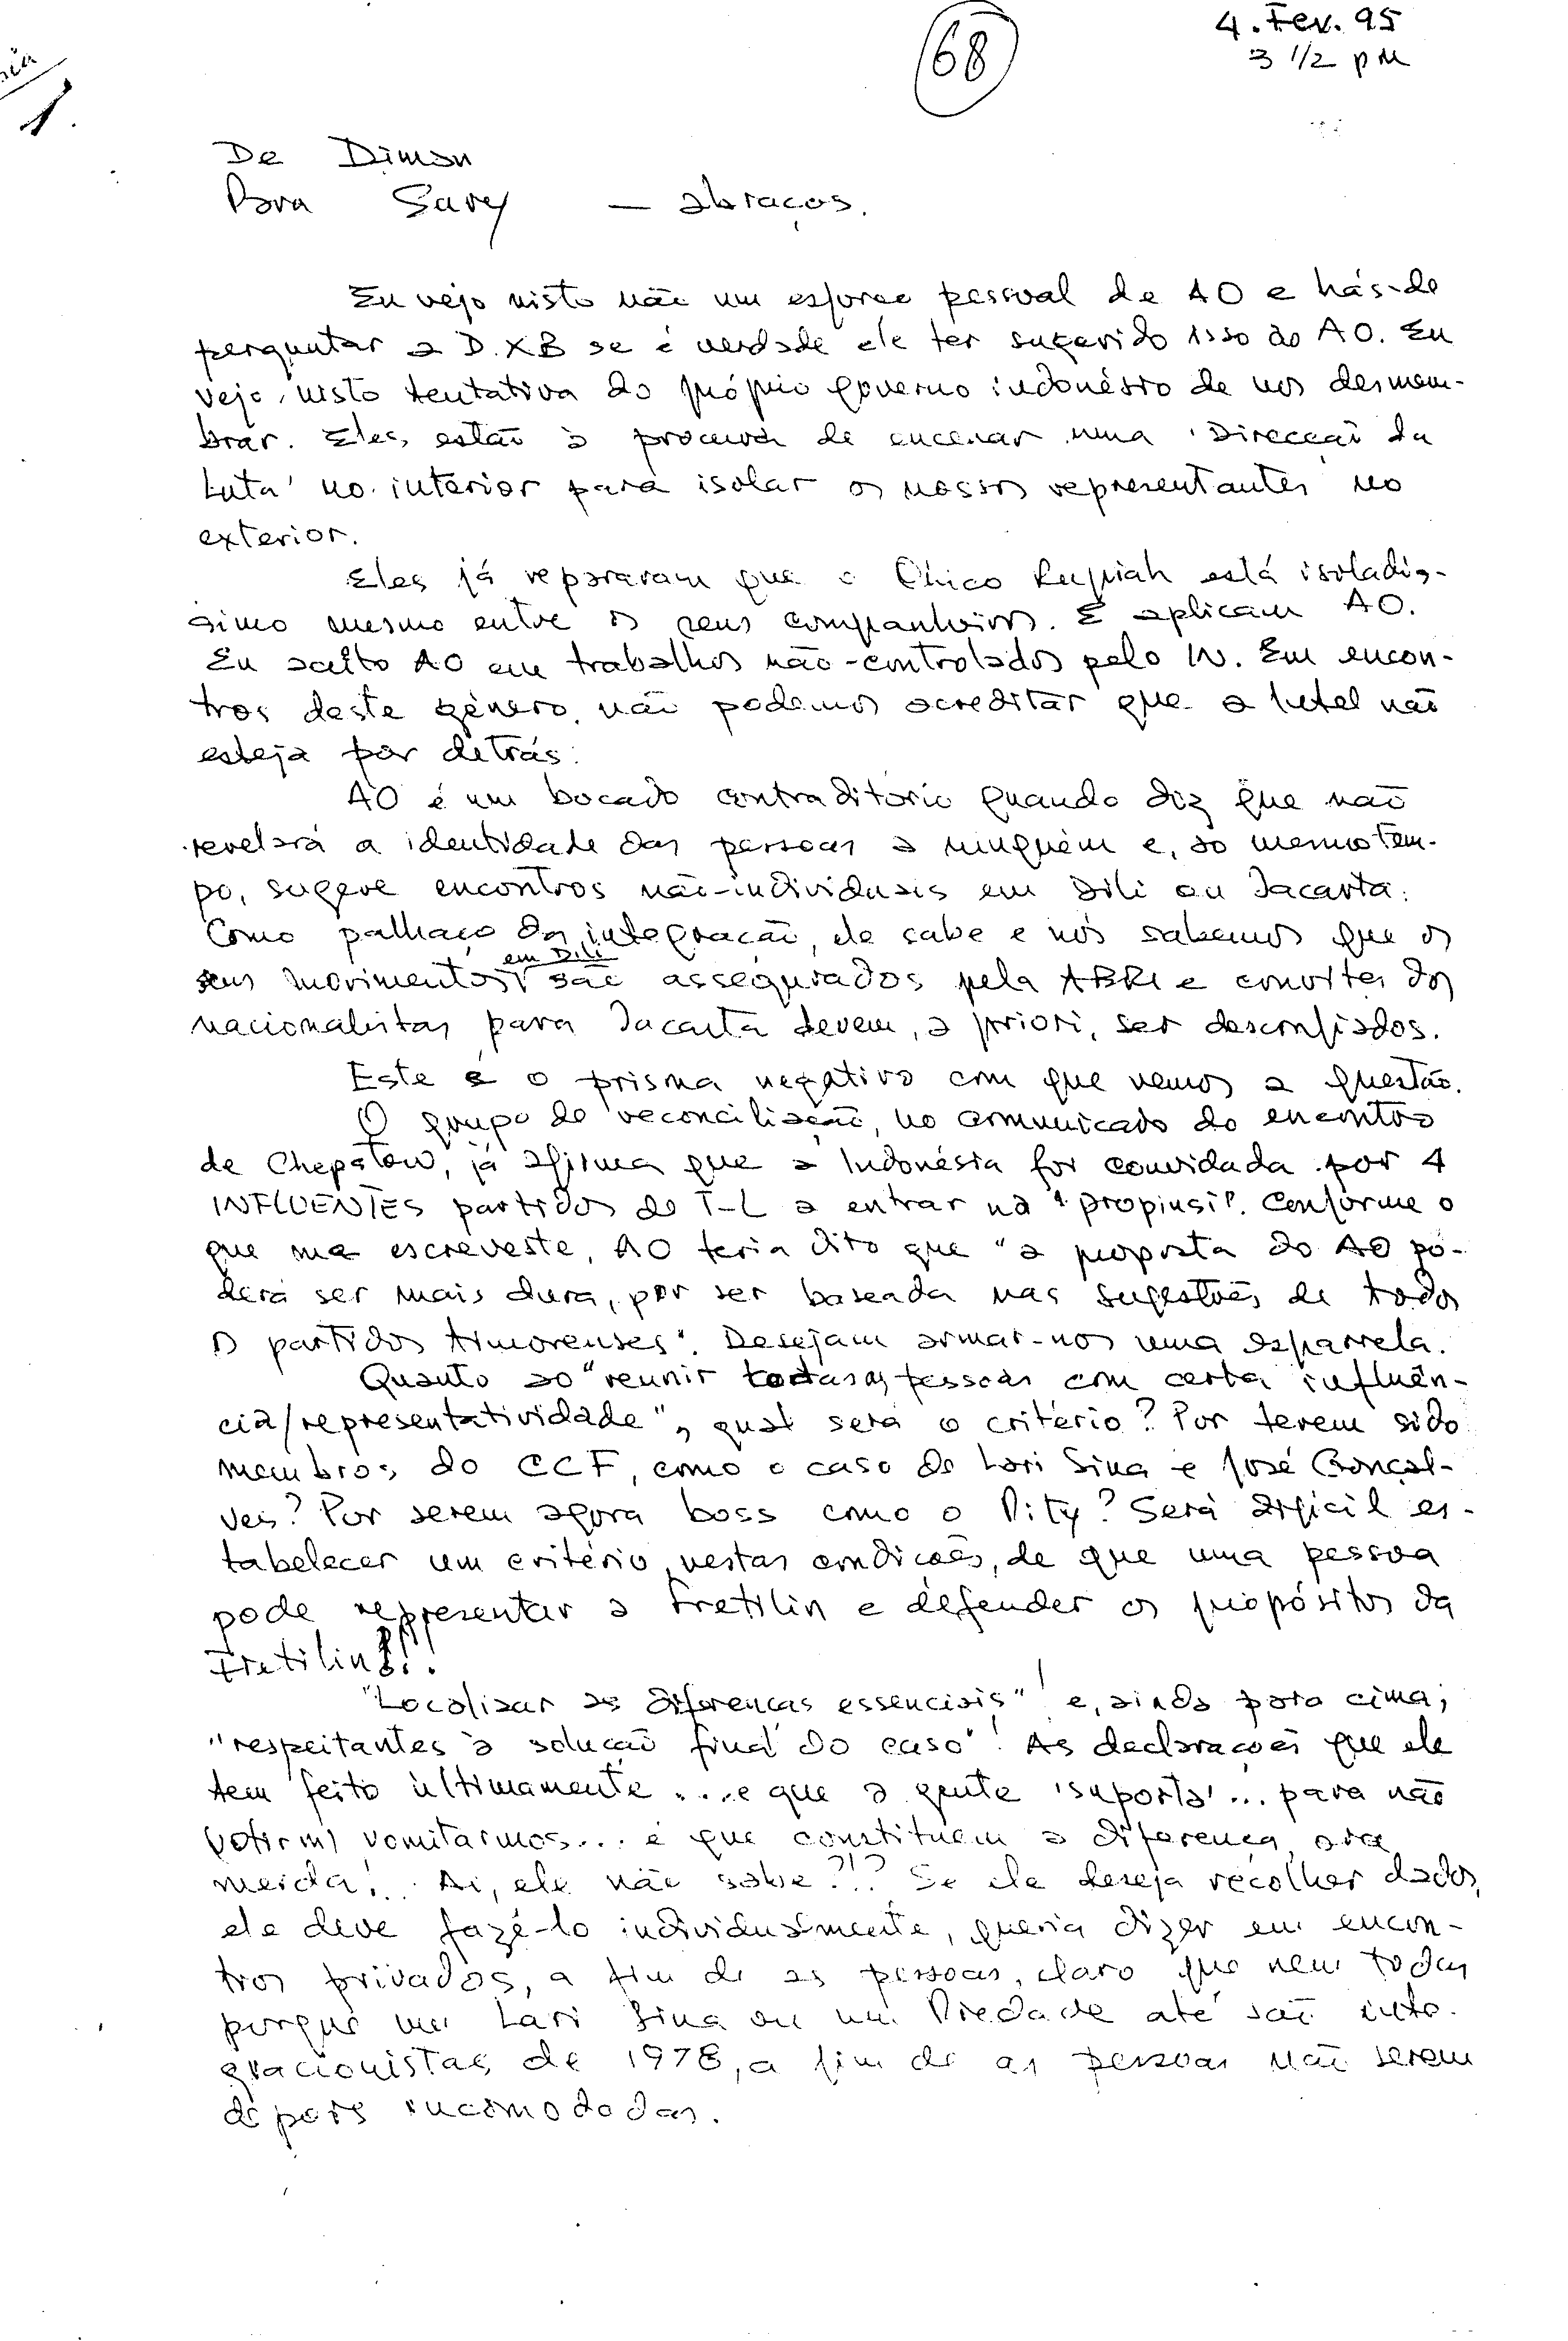 68
4. Fev. 95
3 1/2 pm
1.
De Dimon
Para Savey — abraços.
Eu vejo nisto não um esforço pessoal de AO e hás-de
perguntar a D.XB se é verdade ele ter sugerido isso ao AO. Eu
vejo nisto tentativa do próprio governo indonésio de nos desmem-
brar. Eles estão à procura de encenar uma 'Direcção da
Luta' no interior para isolar os nossos representantes no
exterior.
Eles já repararam que o Chico Rupiah está isoladís-
simo mesmo entre os seus companheiros. E aplicam AO.
Eu salto AO em trabalhos não-controlados pelo IN. Em encon-
tros deste género, não podemos acreditar que a Intel não
esteja por detrás.
AO é um bocado contraditório quando diz que não
revelará a identidade das pessoas a ninguém e, ao mesmo tem-
po, sugere encontros não-individuais em Dili ou Jacarta.
Como palhaço da integração, ele sabe e nós sabemos que os
seus movimentos em Dili são assegurados pela ABRI e convites dos
nacionalistas para Jacarta devem, a priori, ser desconfiados.
Este é o prisma negativo com que vemos a questão.
O grupo de reconciliação, no comunicado do encontro
de Chepstow, já afirma que a Indonésia foi convidada por 4
INFLUENTES partidos de T-L a entrar na "propinsi". Conforme o
que me escreveste, AO teria dito que "a proposta do AO po-
derá ser mais dura, por ser baseada nas sugestões de todos
os partidos timorenses". Desejam armar-nos uma esparrela.
Quanto ao "reunir todas as pessoas com certa influên-
cia/representatividade", qual será o critério? Por terem sido
membros do CCF, como o caso de Lari Sina e José Gonçal-
ves? Por serem agora boss como o Pity? Será difícil es-
tabelecer um critério, nestas condições, de que uma pessoa
pode representar a Fretilin e defender os propósitos da
Fretilin!!!
"Localizar as diferenças essenciais"! e, ainda para cima,
"respeitantes à solução final do caso"! As declarações que ele
tem feito ùltimamente... e que a gente 'suporta'... para não
vomitarmos... é que constituem a diferença, ora
merda!.. Ai, ele não sabe?!? Se ele deseja recolher dados,
ele deve fazê-lo individualmente, queria dizer em encon-
tros privados, a fim de as pessoas, claro que nem todas
porque um Lari Sina ou um Piedade até são inte-
gracionistas de 1978, a fim de as pessoas não serem
depois incomodadas.